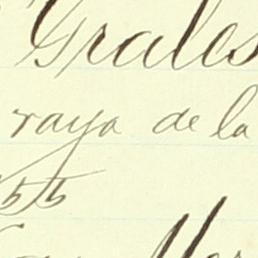 Grales
raya de la
55